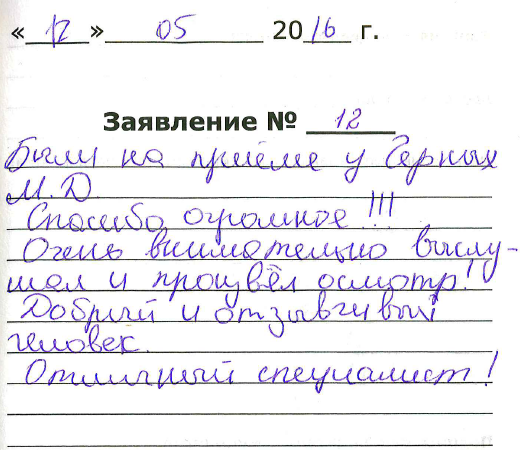 « 12 » 05 2016 г.
Заявление № 12
Были на приёме у Черных
М.Д.
Спасибо огромное!!!
Очень внимательно выслу-
шал и произвёл осмотр!
Добрый и отзывчивый
человек.
Отличный специалист!